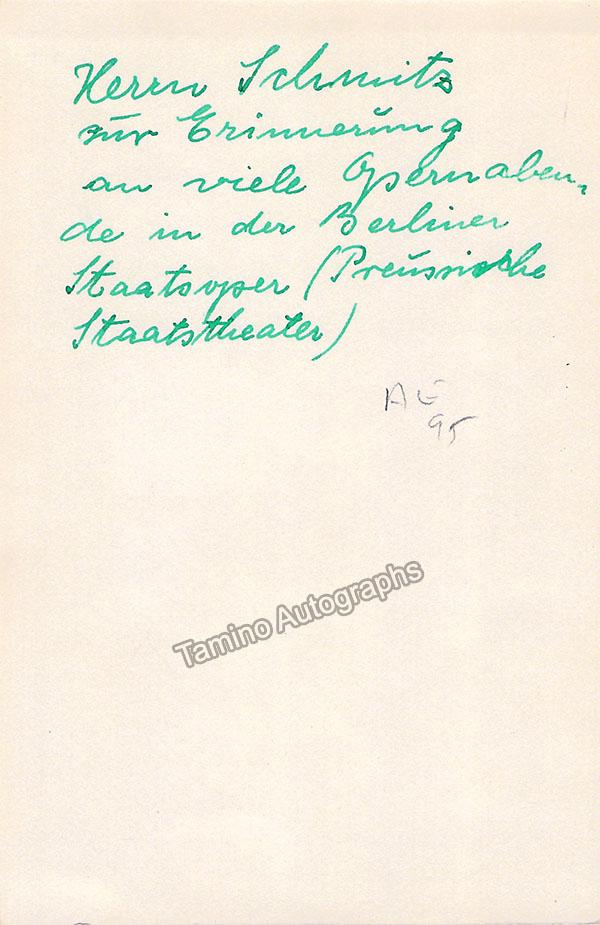 Herrn Schmitz
zur Erinnerung
an viele Opernaben-
de in der Berliner
Staatsoper (Preussische
Staatstheater)
AE
95
Tamino Autographs